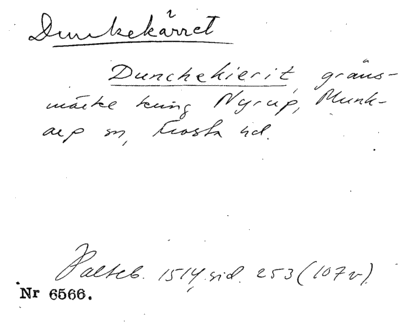 Dunckekärret
Dunchekierit, gräns-
märke kring Nyrup, Munk-
arp sn, Frosta hd.
Palteb. 1514, sid. 253 (107v).
Nr 6566.